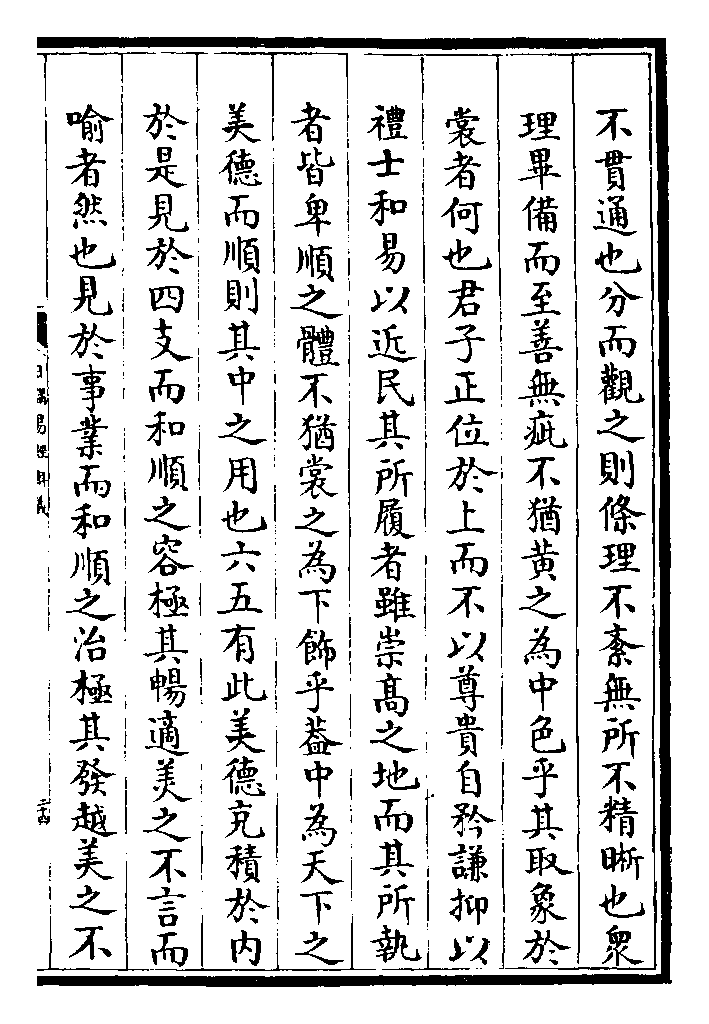 不貫通也分而觀之則條理不紊無所不精晰也衆
理畢備而至善無疵不猶黃之為中色乎其取象於
裳者何也君子正位於上而不以尊貴自矜謙抑以
禮士和易以近民其所履者雖崇髙之地而其所執
者皆卑順之體不猶裳之為下飾乎葢中為天下之
美德而順則其中之用也六五有此美德充積於内
於是見於四支而和順之容極其暢適美之不言而
喻者然也見於事業而和順之治極其發越美之不
日講易經解義
二十四